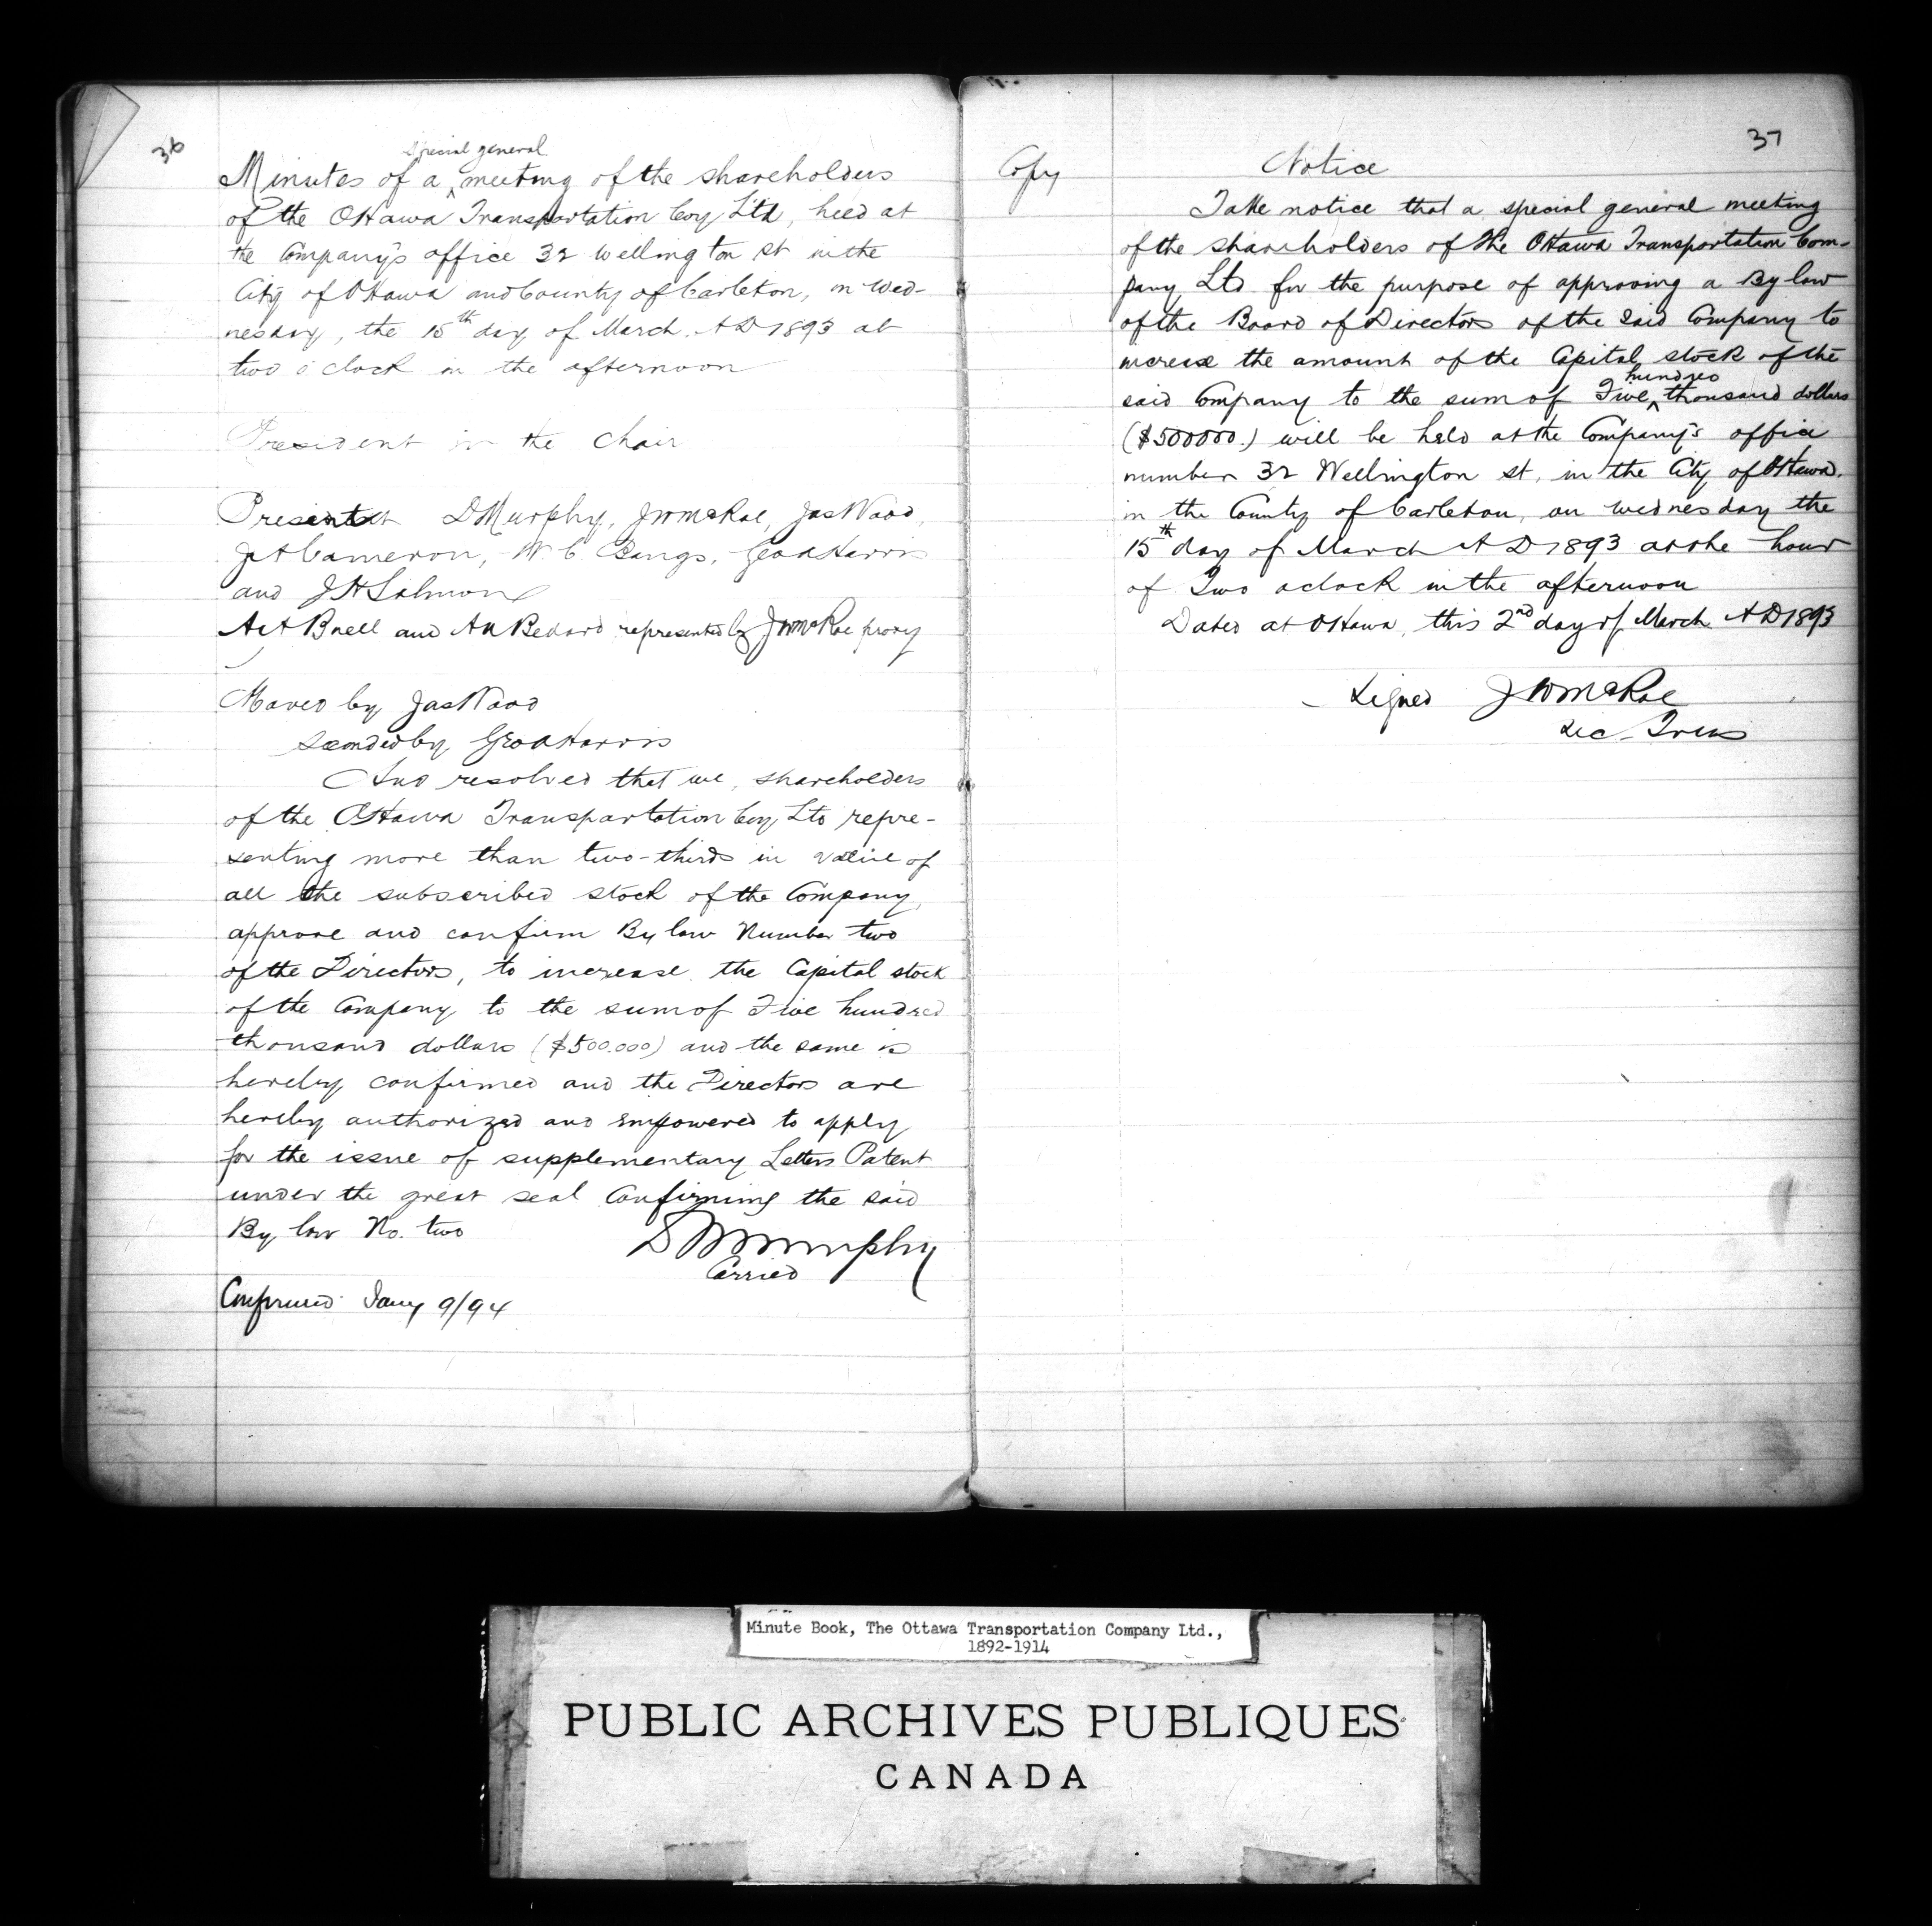 36
Minutes of a special general meeting of the shareholders
of the Ottawa Transportation Coy Ltd, held at
the Company's office 32 Wellington st in the
City of Ottawa and County of Carleton, on Wed-
nesday, the 15th day of March A D 1893 at
two o'clock in the afternoon
President in the chair
Present D Murphy, J W McRae, Jas Wood,
J A Cameron, W. C. Bangs, Geo A Harris
and J H Salmon
Buell and Bedard represented by J W McRae proxy
Moved by Jas Wood
Seconded by Geo A Harris
And resolved that we, shareholders
of the Ottawa Transportation Coy Ltd repre-
senting more than two-thirds in value of
all the subscribed stock of the Company,
approve and confirm By law Number two
of the Directors, to increase the Capital stock
of the Company to the sum of Five hundred
thousand dollars ($500.000) and the same is
hereby confirmed and the Directors are
hereby authorized and empowered to apply
for the issue of supplementary Letters Patent
under the great seal Confirming the said
By law No. two
D Murphy
Carried
Confirmed Jany 9/94
37
Copy
Notice
Take notice that a special general meeting
of the shareholders of the Ottawa Transportation Com-
pany Ltd for the purpose of approving a By law
of the Board of Directors of the said Company to
increase the amount of the Capital stock of the
said Company to the sum of Five hundred thousand dollars
($500000.) will be held at the Company's office
number 32 Wellington st, in the City of Ottawa,
in the County of Carleton, on wednesday the
15th day of March A D 1893 at the hour
of Two oclock in the afternoon
Dated at Ottawa, this 2nd day of March A D 1893
Signed J W McRae
Sec. Treas
Minute Book, The Ottawa Transportation Company Ltd.,
1892-1914
PUBLIC ARCHIVES PUBLIQUES
CANADA